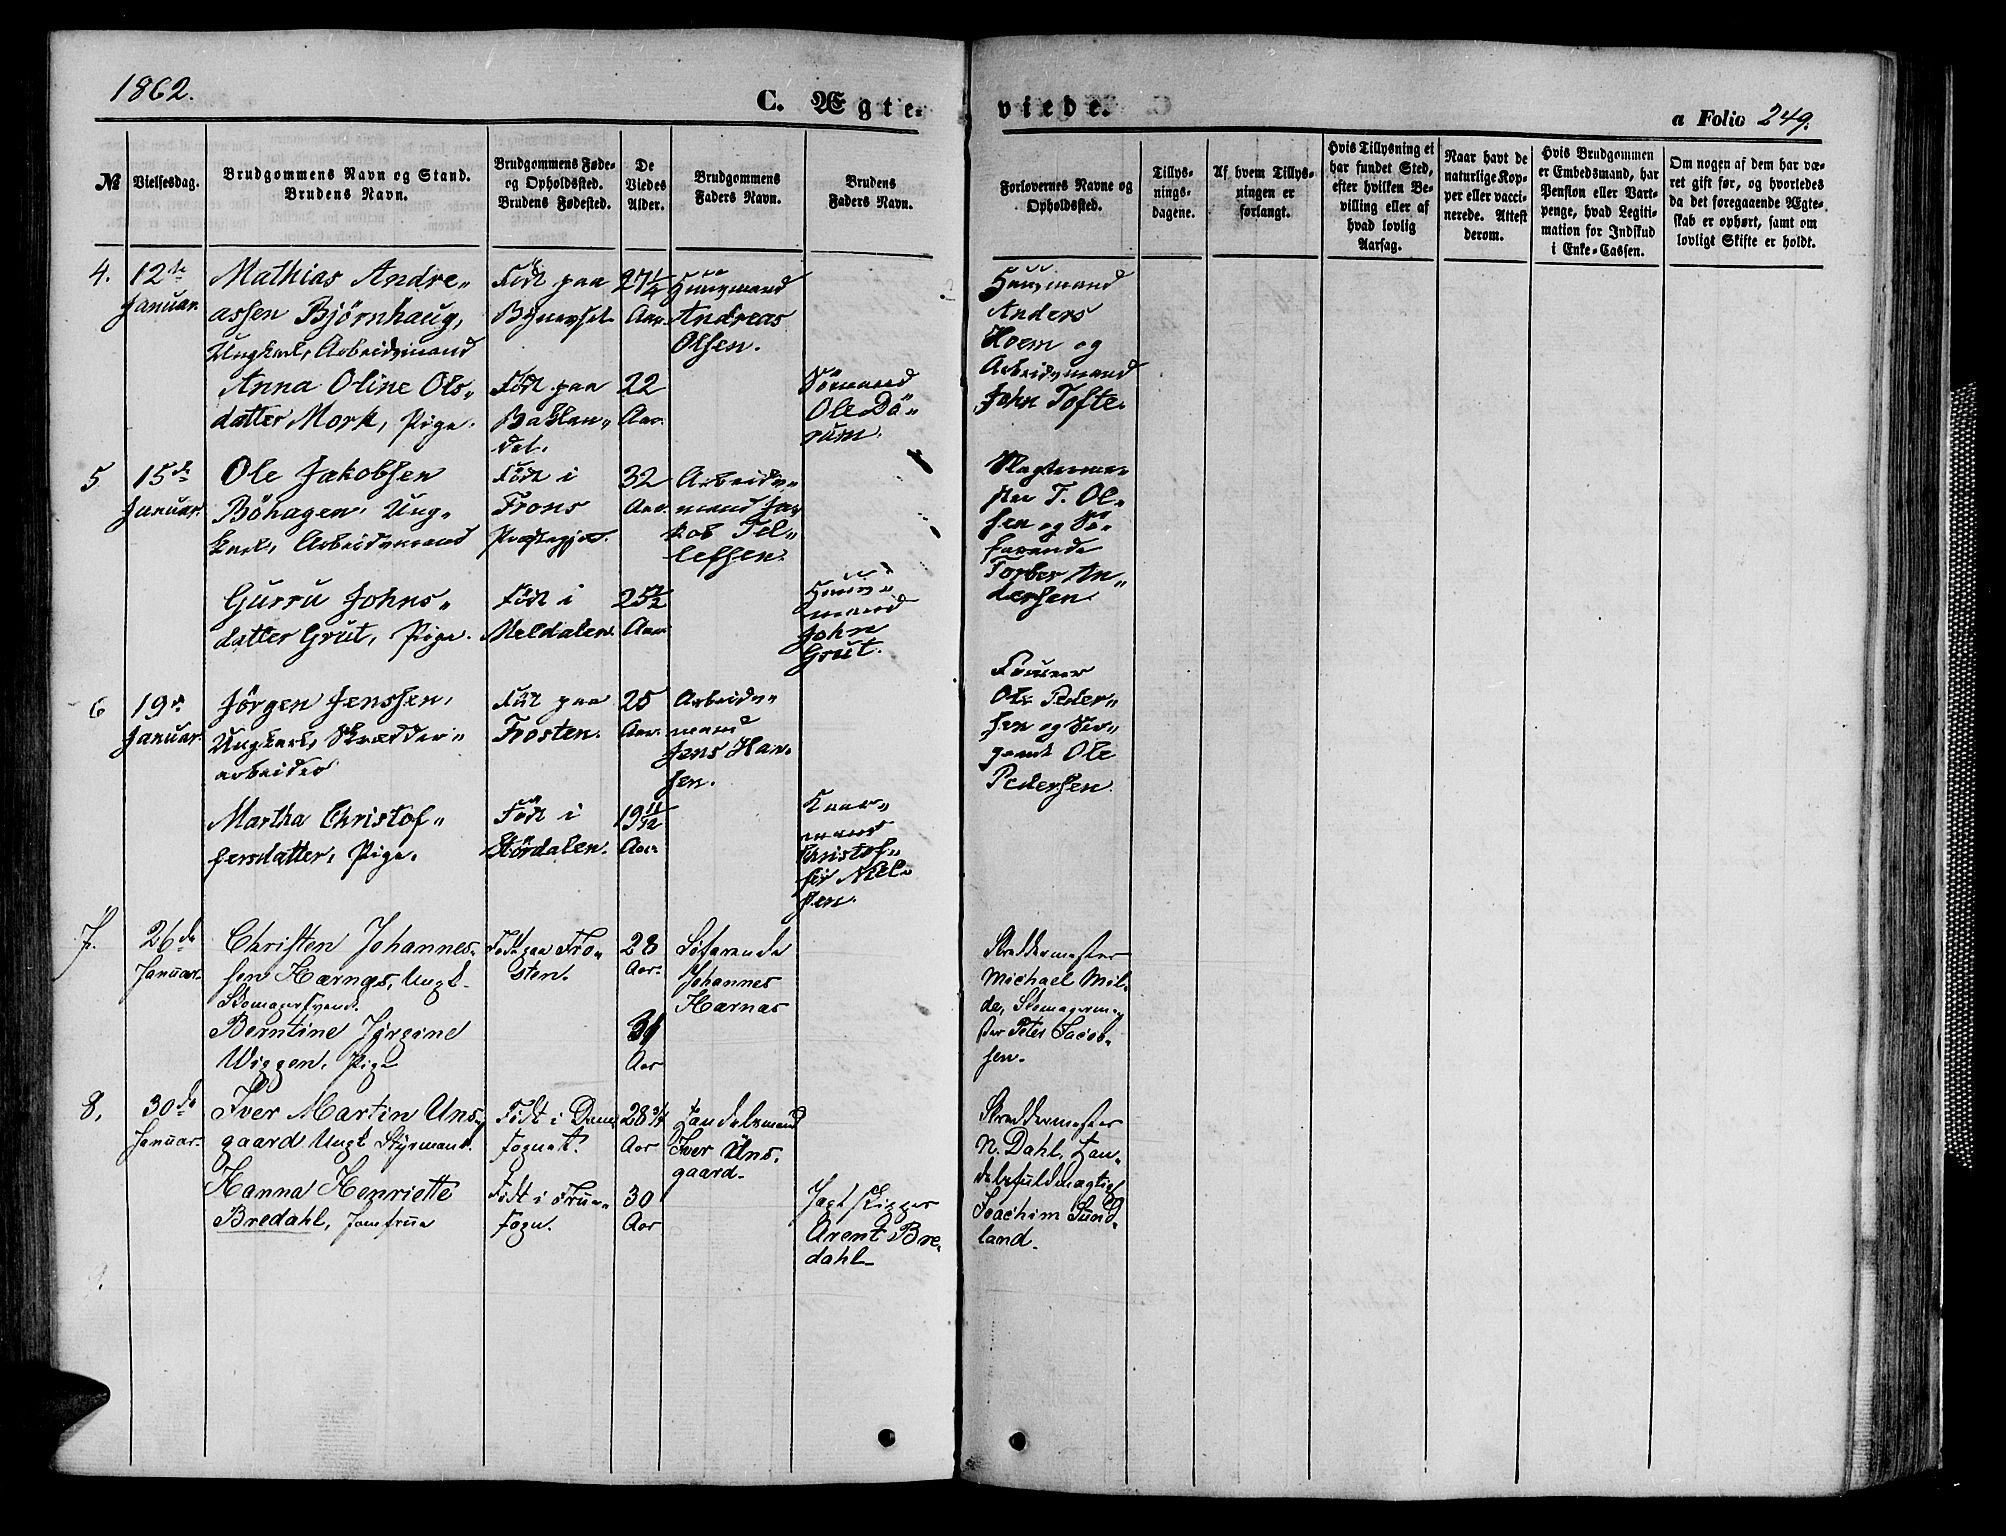 1862.
C. Ægte-
viede.
a Folio 249.
№
Vielsesdag.
Brudgommens Navn og Stand.
Brudens Navn.
Brudgommens Føde-
og Opholdssted.
Brudens Fødested.
De
Viedes
Alder.
Brudgommens
Faders Navn.
Brudens
Faders Navn.
Forlovernes Navne og
Opholdssted.
Tillys-
nings-
dagene.
Af hvem Tillys-
ningen er
forlangt.
Hvis Tillysning ei
har fundet Sted,
efter hvilken Be-
villing eller af
hvad lovlig
Aarsag.
Naar havt de
naturlige Kop-
per eller vacci-
nerede. Attest
derom.
Hvis Brudgommen
er Embedsmand, har
Pension eller Vart-
penge, hvad Legiti-
mation for Indskud
i Enke-Cassen.
Om nogen af dem har væ-
ret gift før, og hvorledes
da det foregaaende Ægte-
skab er ophørt, samt om
lovligt Skifte er holdt.
4.
12te
Januar.
Mathias Andre-
assen Bjørnhaug,
Ungkarl, Arbeidsmand
Født paa
Bynesset
27 1/4
Aar.
Huusmand
Andreas
Olsen.
Huusmand
Anders
Hoem og
Arbeidsmand
John Tofte.
Anna Oline Ols-
datter Mork, Pige.
Født paa
Baklan-
det.
22
Aar.
Sömand
Ole Dö-
rum.
5
15de
Januar.
Ole Jakobsen
Böhagen, Ung-
karl, Arbeidsmand
Född i
Frons
Præstegjæ.
32
Aar.
Arbeids-
mand Ja-
kob Tol-
lefsen.
Slagterme-
ster T. Ol-
sen og Sö-
farende
Torber An-
dersen.
Gurru Johns-
datter Grut, Pige.
Född i
Meldalen.
25 1/2
Aar.
Huus-
mand
John
Grut.
6
19de
Januar.
Jörgen Jenssen,
Ungkarl, Skrædder-
arbeider
Född paa
Frosten.
25
Aar.
Arbeids-
mand
Jens Han-
sen.
Fourer
Ole Peder-
sen og Ser-
geant Ole
Pedersen.
Martha Christof-
fersdatter, Pige.
Född i
Stördalen.
19 11/12
Aar.
Christof-
fer Niel-
sen.
7.
26de
Januar.
Christen Johannes-
sen Harnæs, Ungk.
Skomagersvend.
Født paa Fro-
sten.
28
Aar.
Søfarende
Johannes
Harnas
Skræddermester
Michael Mil-
de, Skomagerme-
ster Peter Jacob-
sen.
Berntine Jørgine
Wiggen, Pige
31
Aar
8.
30de
Januar.
Iver Martin Uns-
gaard Ungk. Styrmand.
Født i Dom-
sognet.
28 3/4
Aar
Handelsmand
Iver Uns-
gaard.
Skræddermester
N. Dahl, Han-
delsfuldmægtig
Joachim Sund-
land.
Hanna Henriette
Bredahl, Jomfrue
Født i Frue-
sogn.
30
Aar
Jagtskipper
Arent Bre-
dahl.